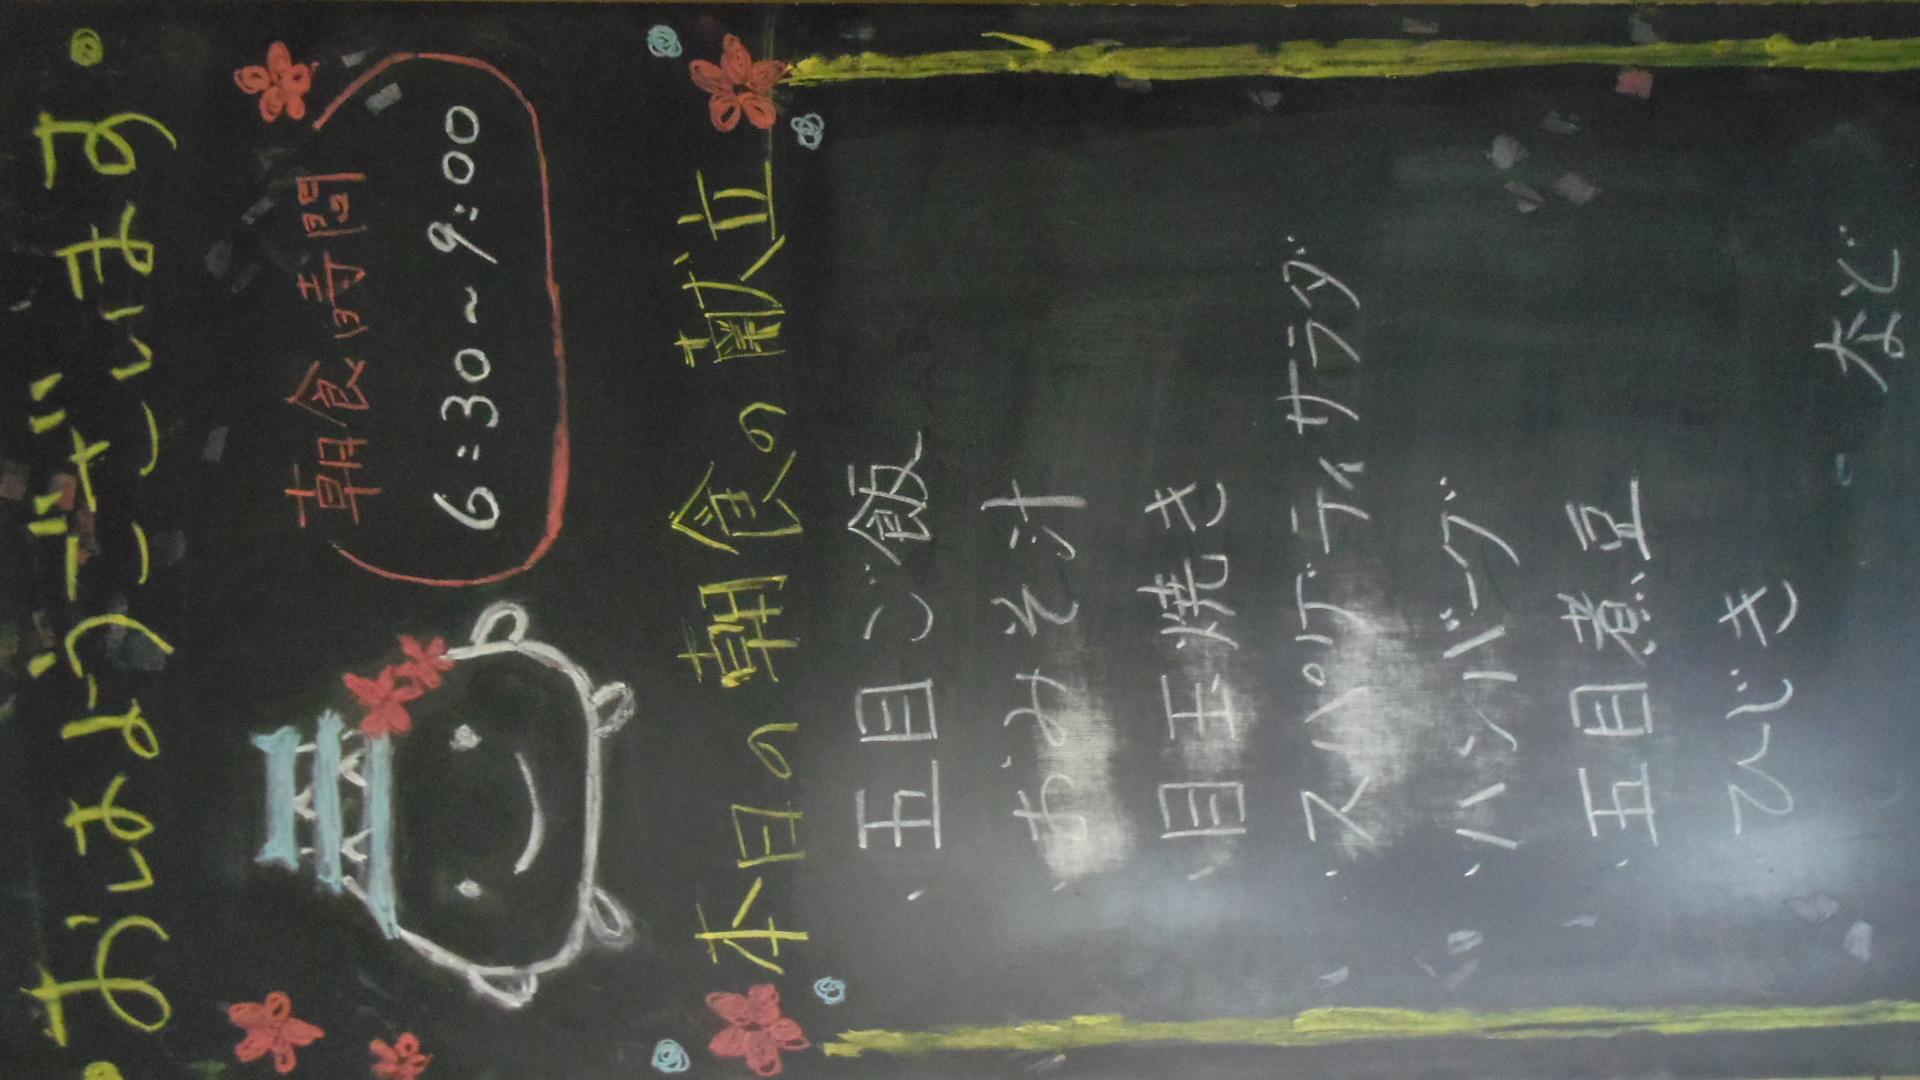 おはようございます
朝食時間
6:30~9:00
本日の朝食の献立
、五目ご飯
、おみそ汁
、目玉焼き
、スパゲティサラダ
、ハンバーグ
、五目煮豆
ひじき
など